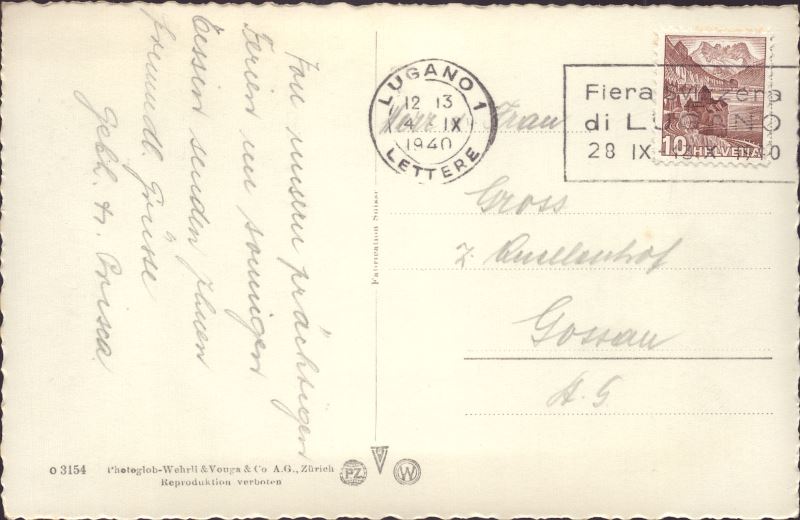 Von unsern prächtigen
Ferien im sonnigen
Tessin senden Ihnen
freundl. Grüsse
Gebh. Prisca
LUGANO 1
12 13
4 IX
1940
LETTERE
Fiera Svizzera
di LUGANO
28 IX - 1940
10 HELVETIA
Herr u. Frau
Gross
z. Quellenhof
Gossau
Fabrication Suisse
O 3154
Photoglob-Wehrli & Vouga & Co A.G., Zürich
Reproduktion verboten
PZ
V
W